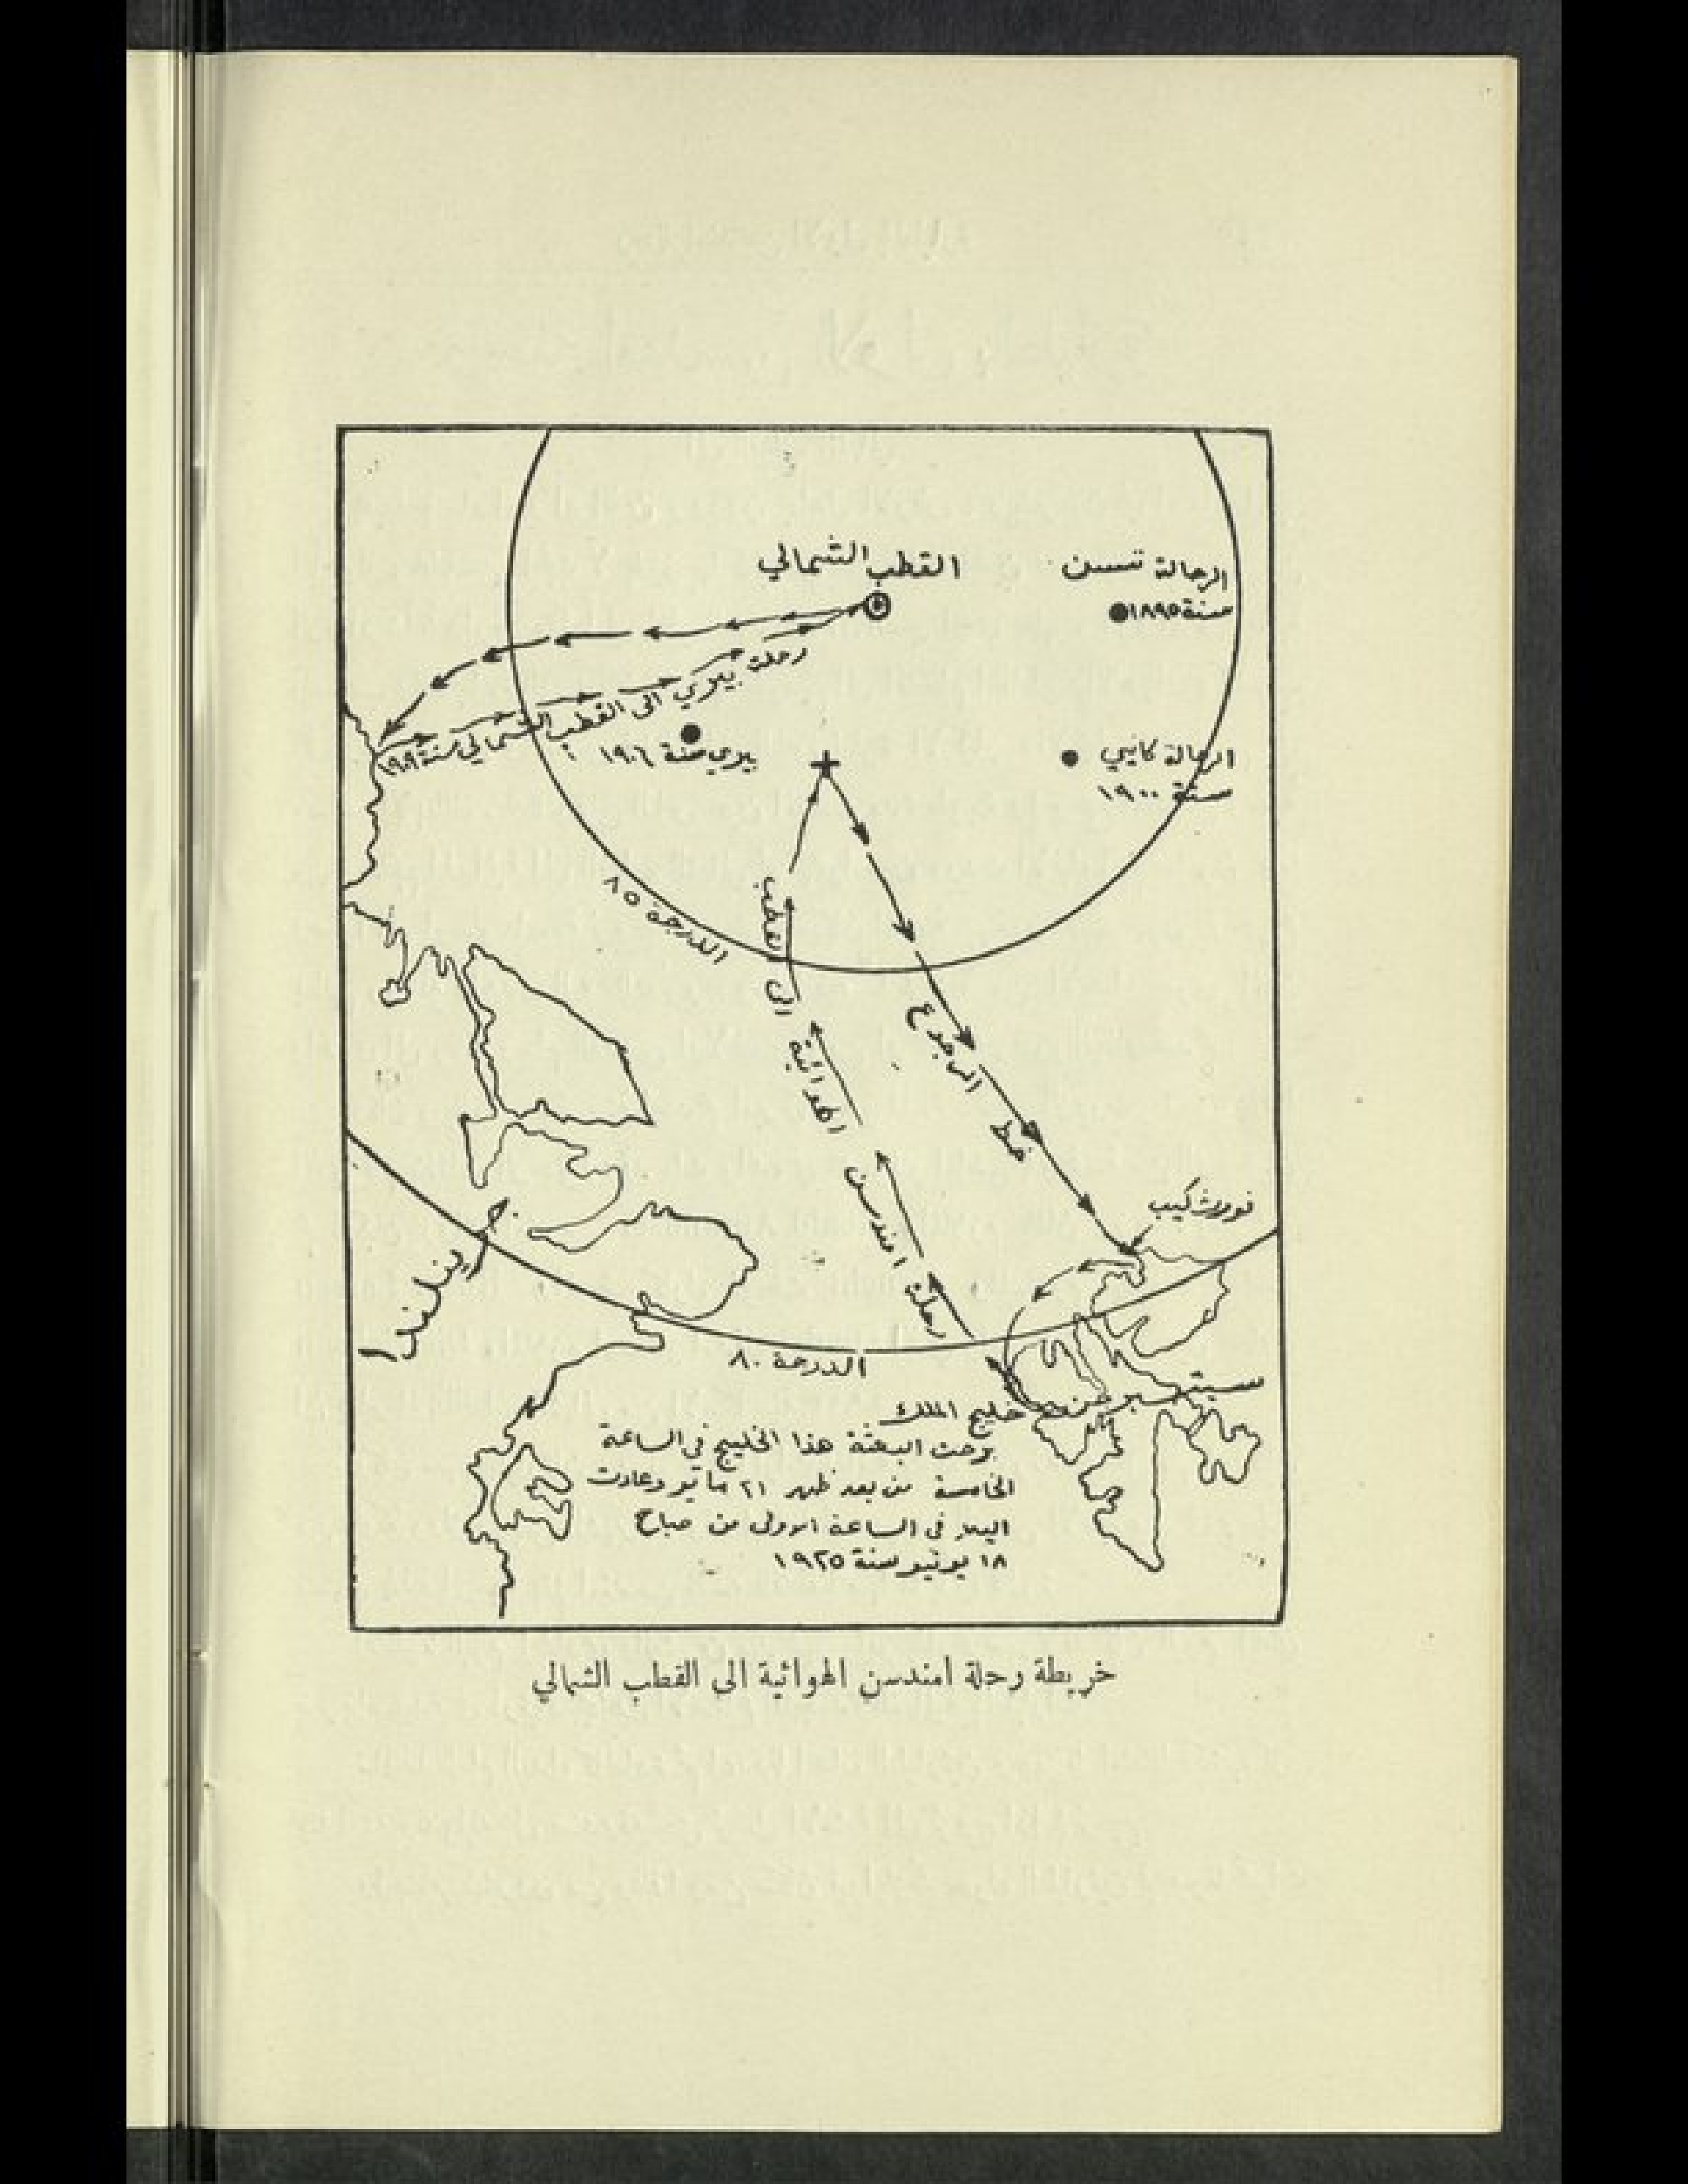 القطب الشمالي
الرحالة ننسن
سنة ١٨٩٥
رحلة بيري الى القطب الشمالي سنة ١٩٠٩
بيري سنة ١٩٠٦
الرحالة كانيي
سنة ١٩٠٠
الدرجة ٨٥
رحلة امندسن الهوائية الى القطب
خط الرجوع
نورث كيب
جرينلندا
الدرجة ٨٠
سبتسبرجن
خليج الملك
برحت البعثة هذا الخليج في الساعة
الخامسة من بعد ظهر ٢١ مايو وعادت
اليه في الساعة الاولى من صباح
١٨ يونيو سنة ١٩٢٥
خريطة رحلة امندسن الهوائية الى القطب الشمالي